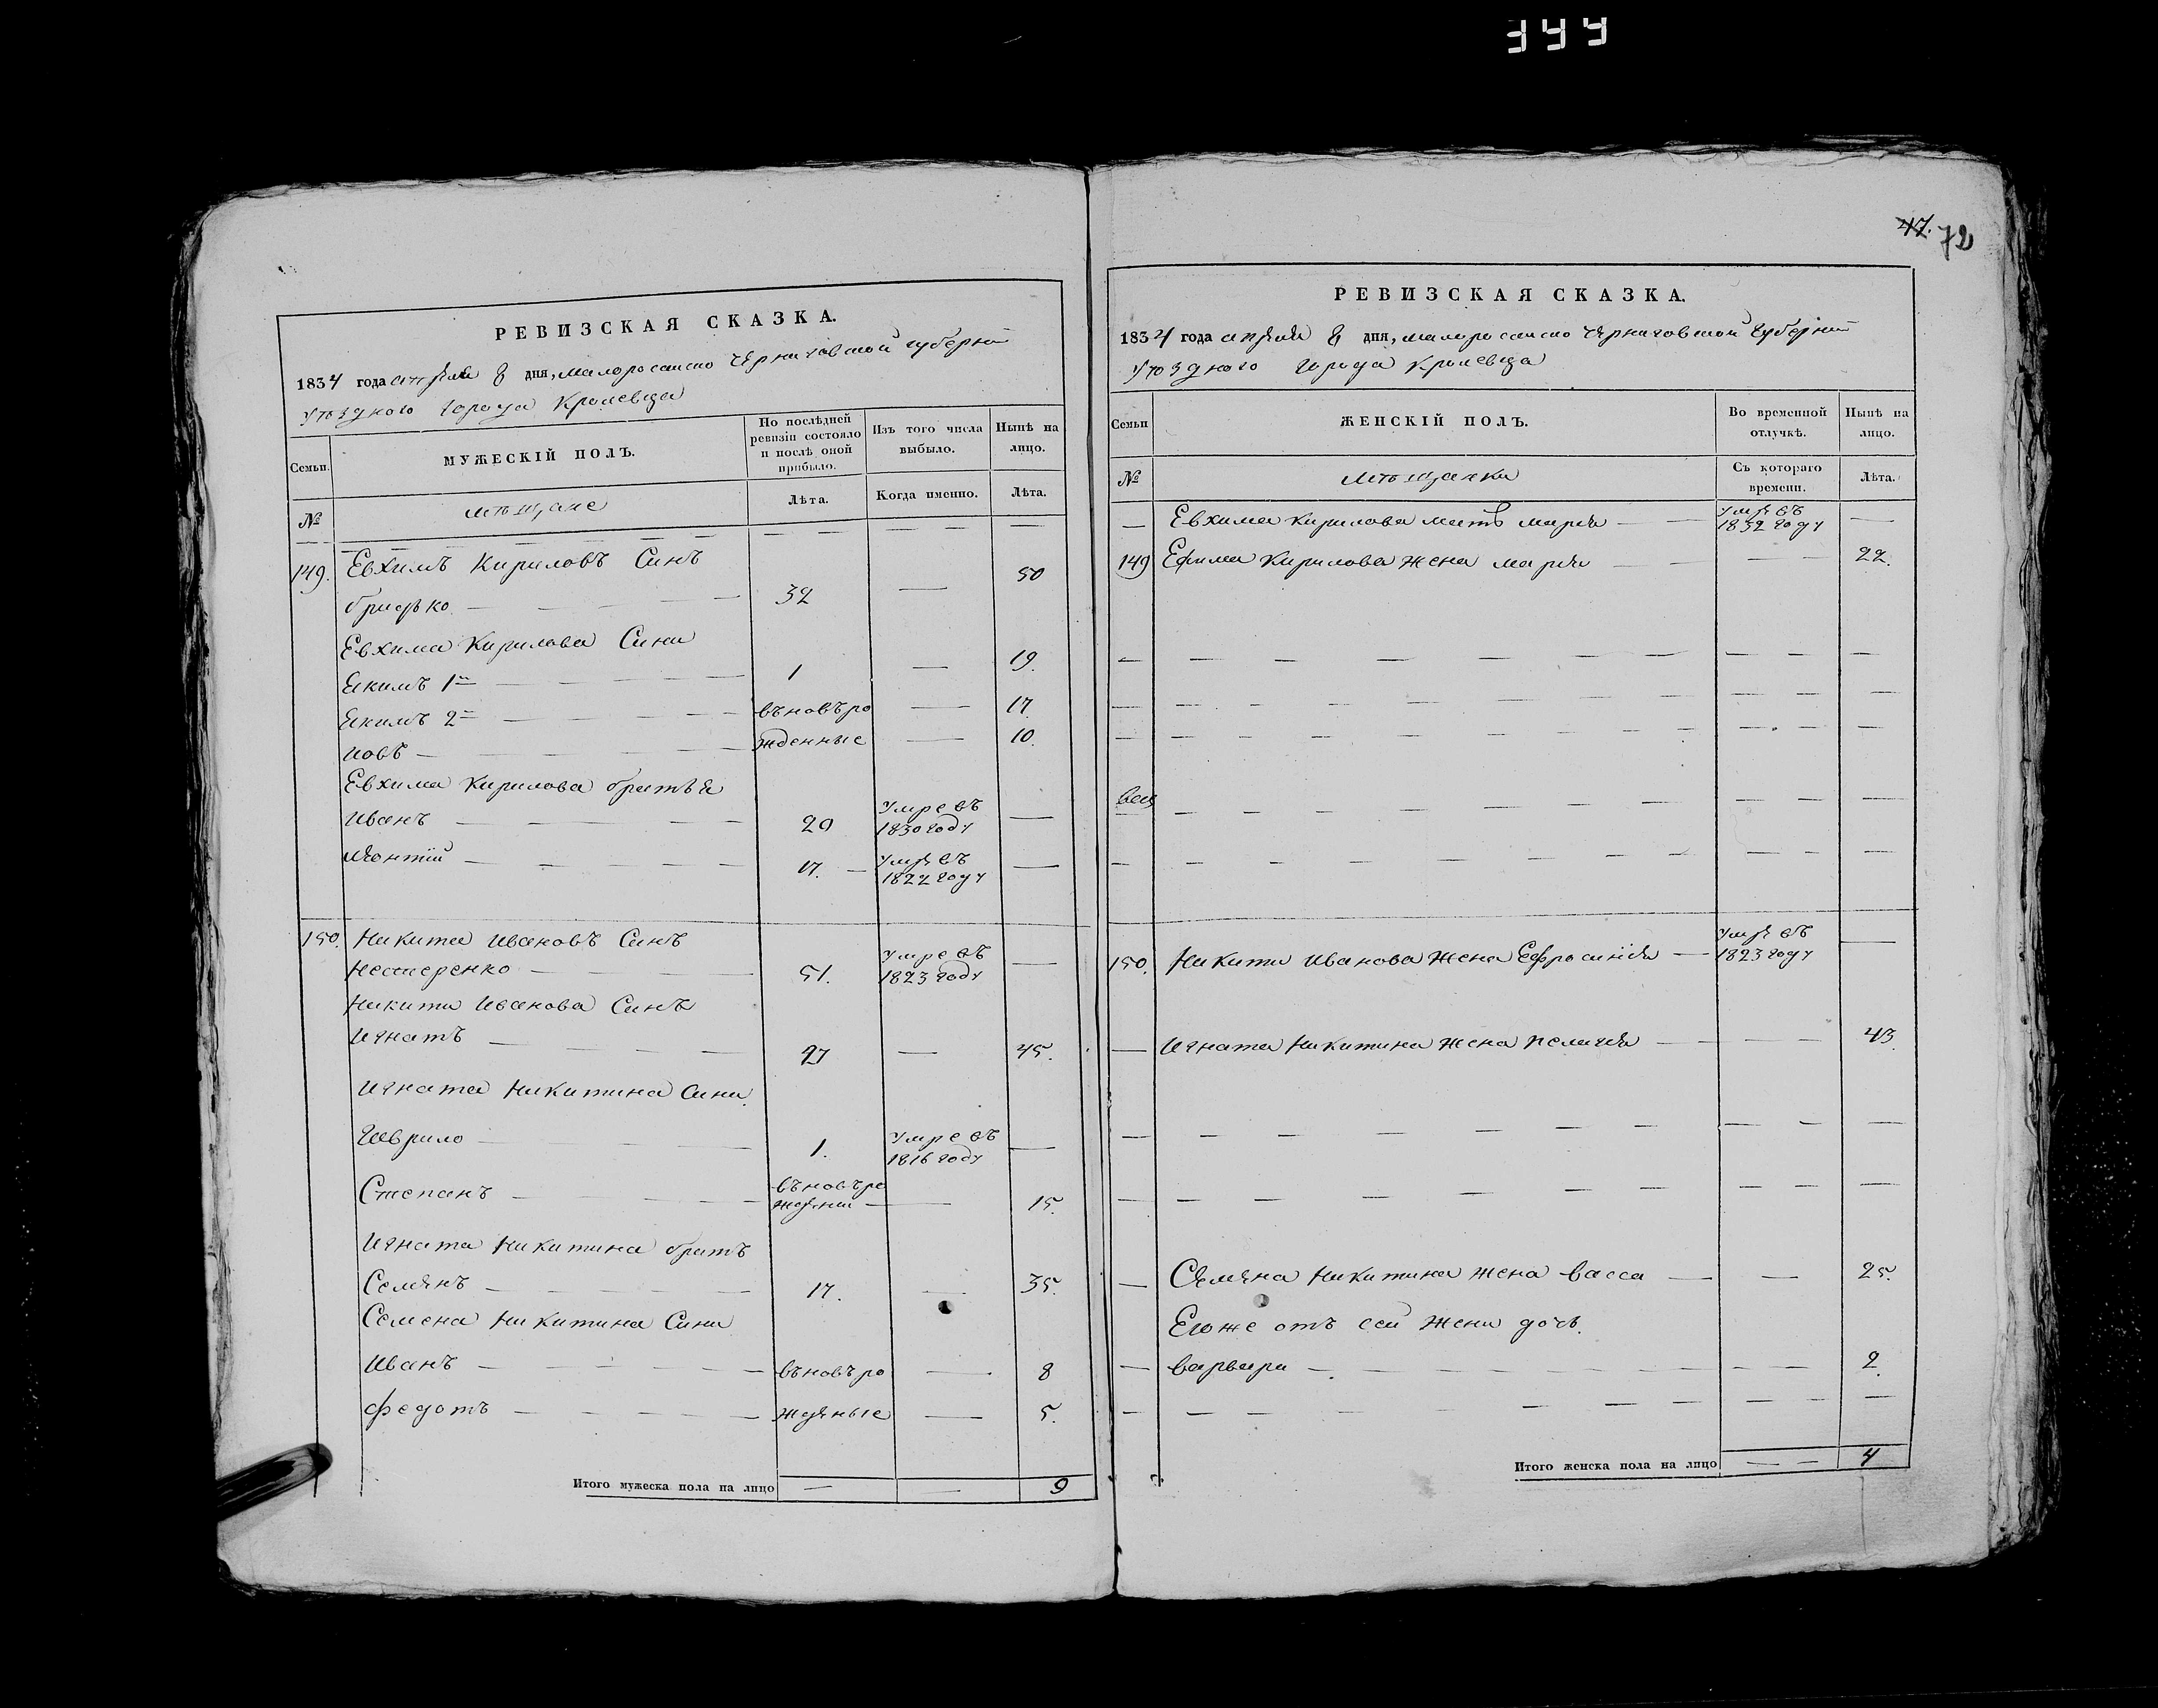 344
47. 72
РЕВИЗСКАЯ СКАЗКА.
1834 года апреля 8 дня, малоросийско Черниговской губернии
уѣзднаго города Кролевца
Семьи. МУЖЕСКІЙ ПОЛЪ. По послѣдней ревизіи состояло и послѣ оной прибыло. Изъ того числа выбыло. Нынѣ на лицо.
№ мѣщане Лѣта. Когда именно. Лѣта.
149. Евхимъ Кириловъ Синъ
Грицько 32 — 50
Евхима Кирилова Сини
Екимъ 1й 1 — 19.
Екимъ 2й въновъро — 17
Иовъ жденные — 10.
Евхима Кирилова братья
Иванъ 20 умре въ 1830 году —
17. — умре въ 1822 году —
150. Никита Ивановъ Синъ
Нестеренко 51. умре въ 1823 году —
Никити Иванова Синъ
Игнатъ 27 — 45.
Игната Никитина Сини.
Гаврило 1. умре въ 1816 году —
Степанъ въновъро ждении — 15.
Игната Никитина братъ
Семенъ 17. — 35.
Семена Никитина Сини
Иванъ въновъро — 8
Федотъ жденые — 5.
Итого мужеска пола на лицо — — 9
РЕВИЗСКАЯ СКАЗКА.
1834 года апреля 8 дня, малоросийско Черниговской Губернии
уѣзднаго города Кролевца
Семьи ЖЕНСКІЙ ПОЛЪ. Во временной отлучкѣ. Нынѣ на лицо.
№ мѣщанки Съ котораго времени. Лѣта.
— Евхима Кирилова мать Мария — умре въ 1832 году —
149 Ефима Кирилова жена Мария — 22.
150. Никити Иванова жена Ефросиния — умре въ 1823 году —
— Игната Никитина жена Пелагия — 43.
— Семена Никитина жена Васса — 25.
Егоже отъ сей жени дочь.
— Варвара — 2.
Итого женска пола на лицо — — 4